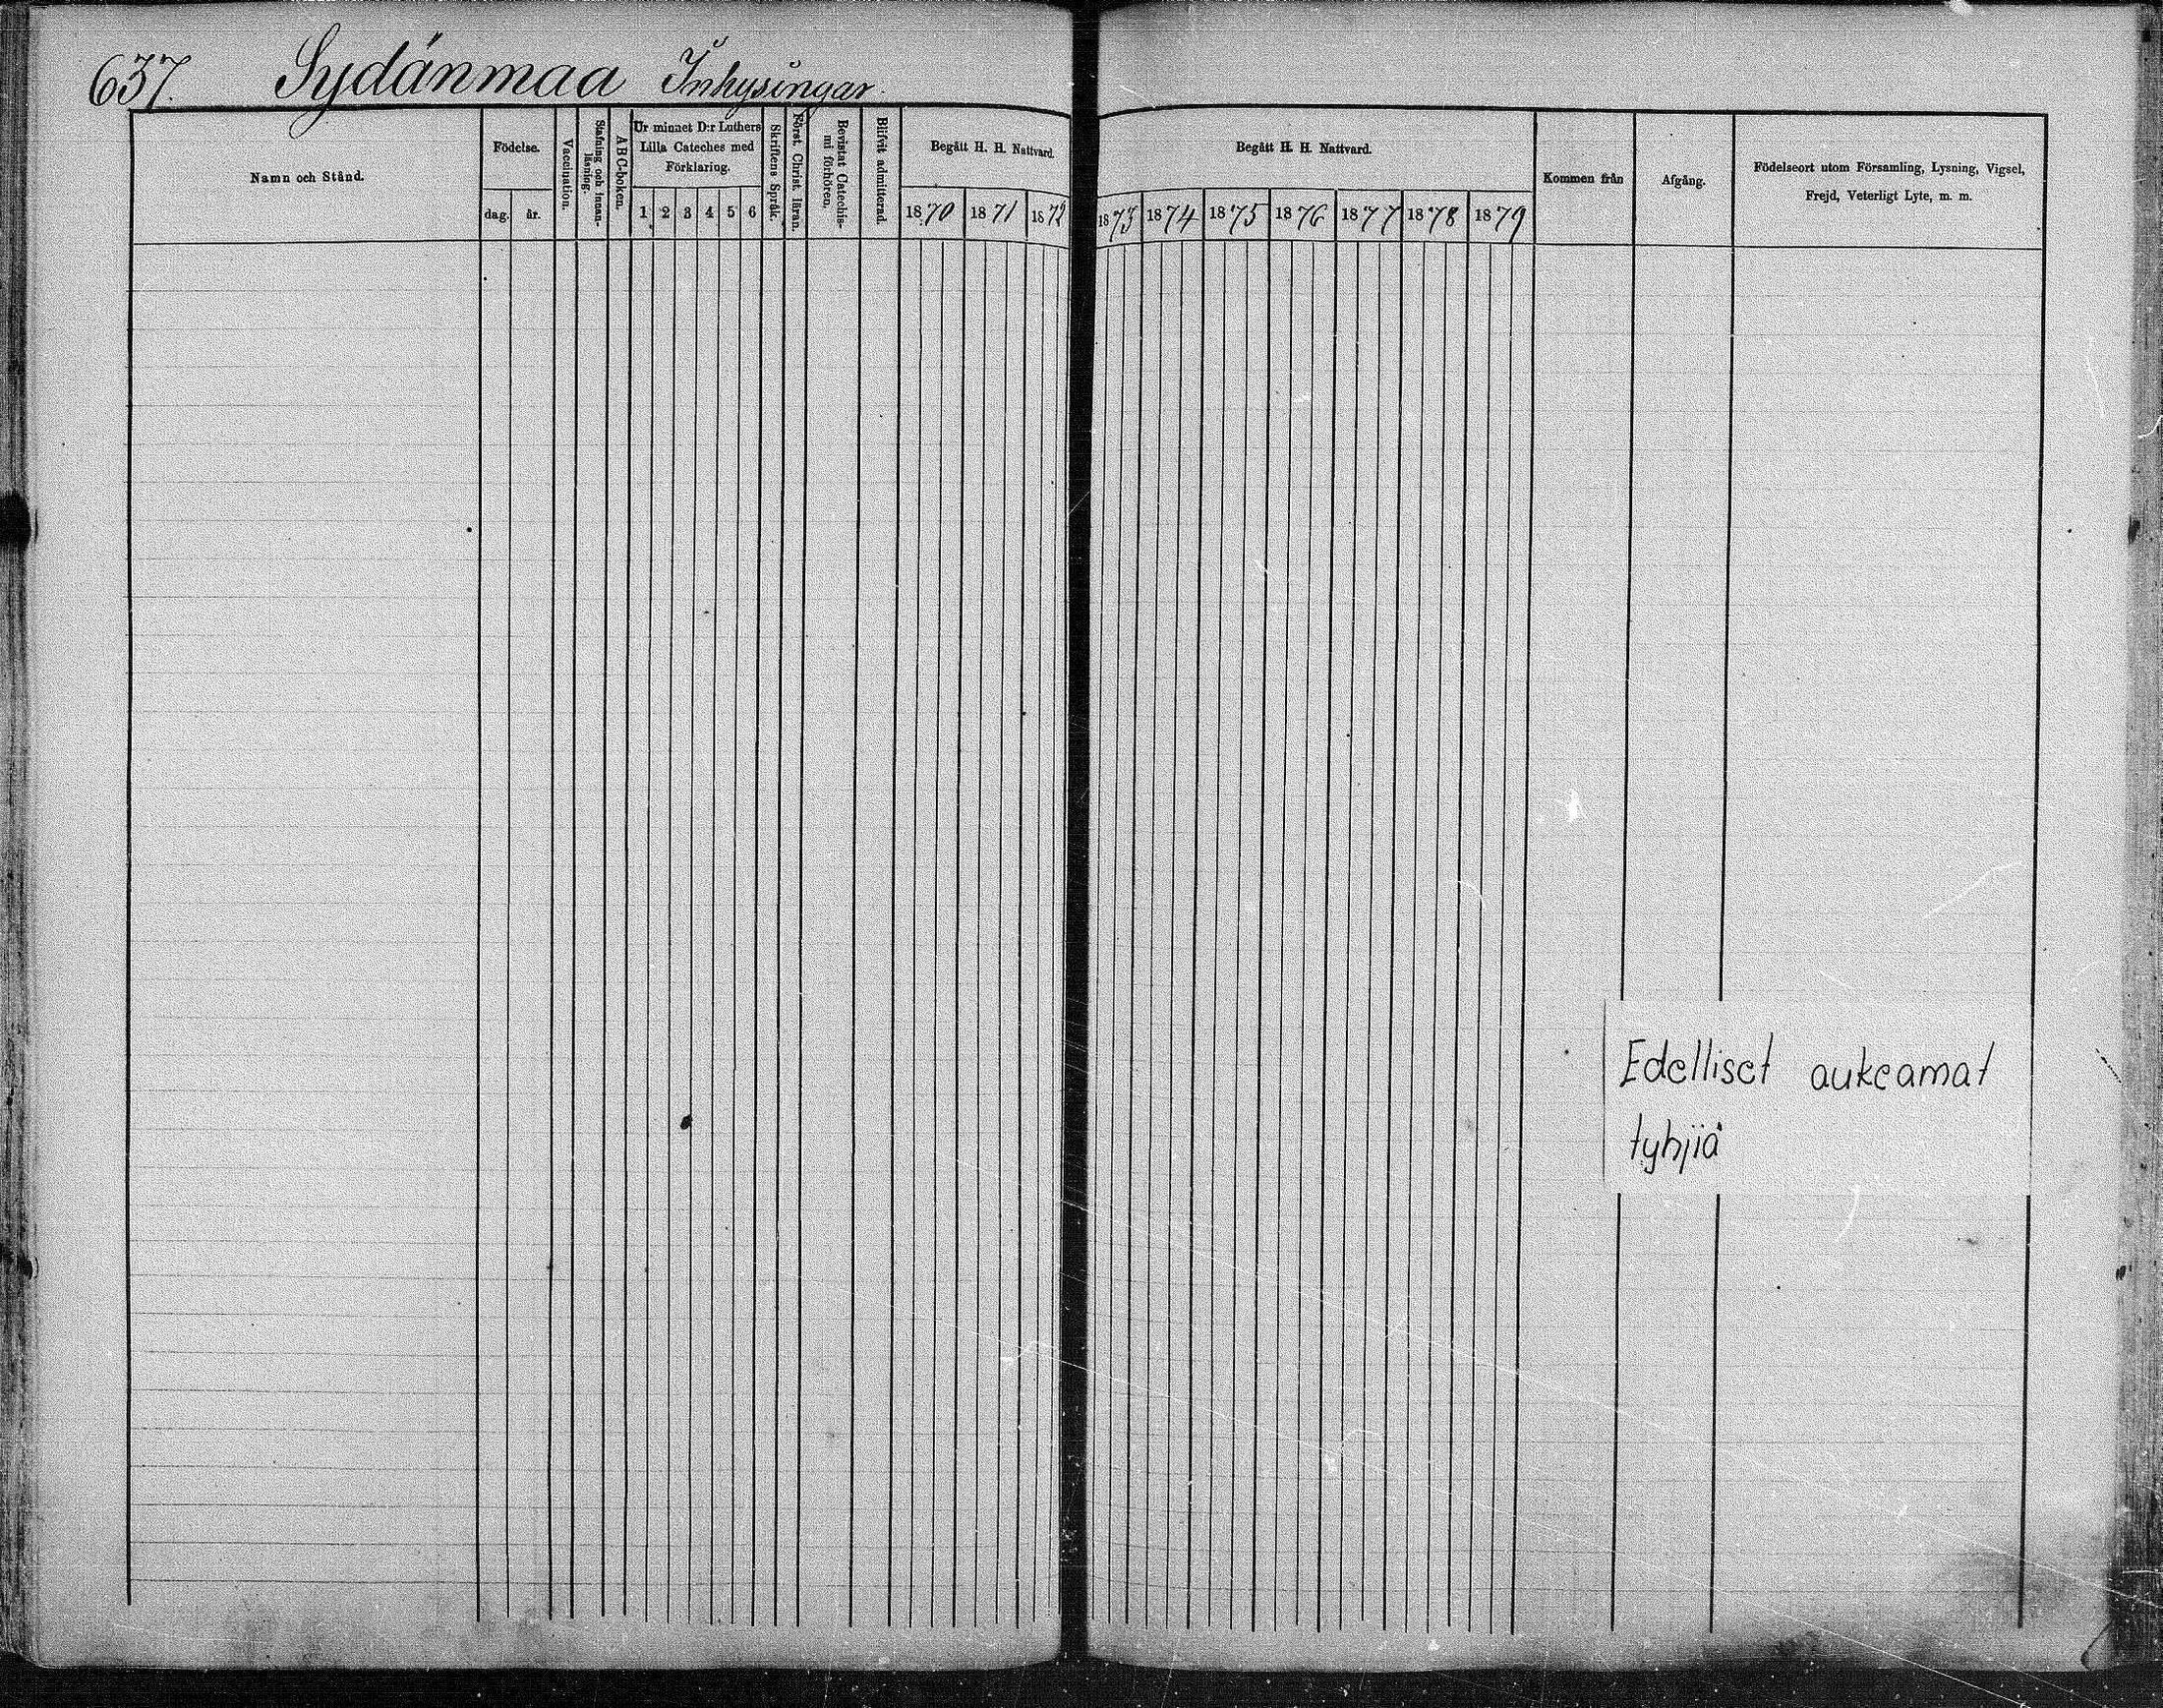 637. Sydänmaa Inhysingar.
Namn och Stånd.
Födelse.
dag. år.
Vaccination.
Stafning och innan-
läsning.
ABC-boken.
Ur minnet D:r Luthers
Lilla Cateches med
Förklaring.
1 2 3 4 5 6
Skriftens Språk.
Först. Christ. läran.
Bevistat Catechis-
mi förhören.
Blifvit admitterad.
Begått H. H. Nattvard.
1870 1871 1872
Begått H. H. Nattvard.
1873 1874 1875 1876 1877 1878 1879
Kommen från
Afgång.
Födelseort utom Församling, Lysning, Vigsel,
Frejd, Veterligt Lyte, m. m.
Edelliset aukeamat
tyhjiä